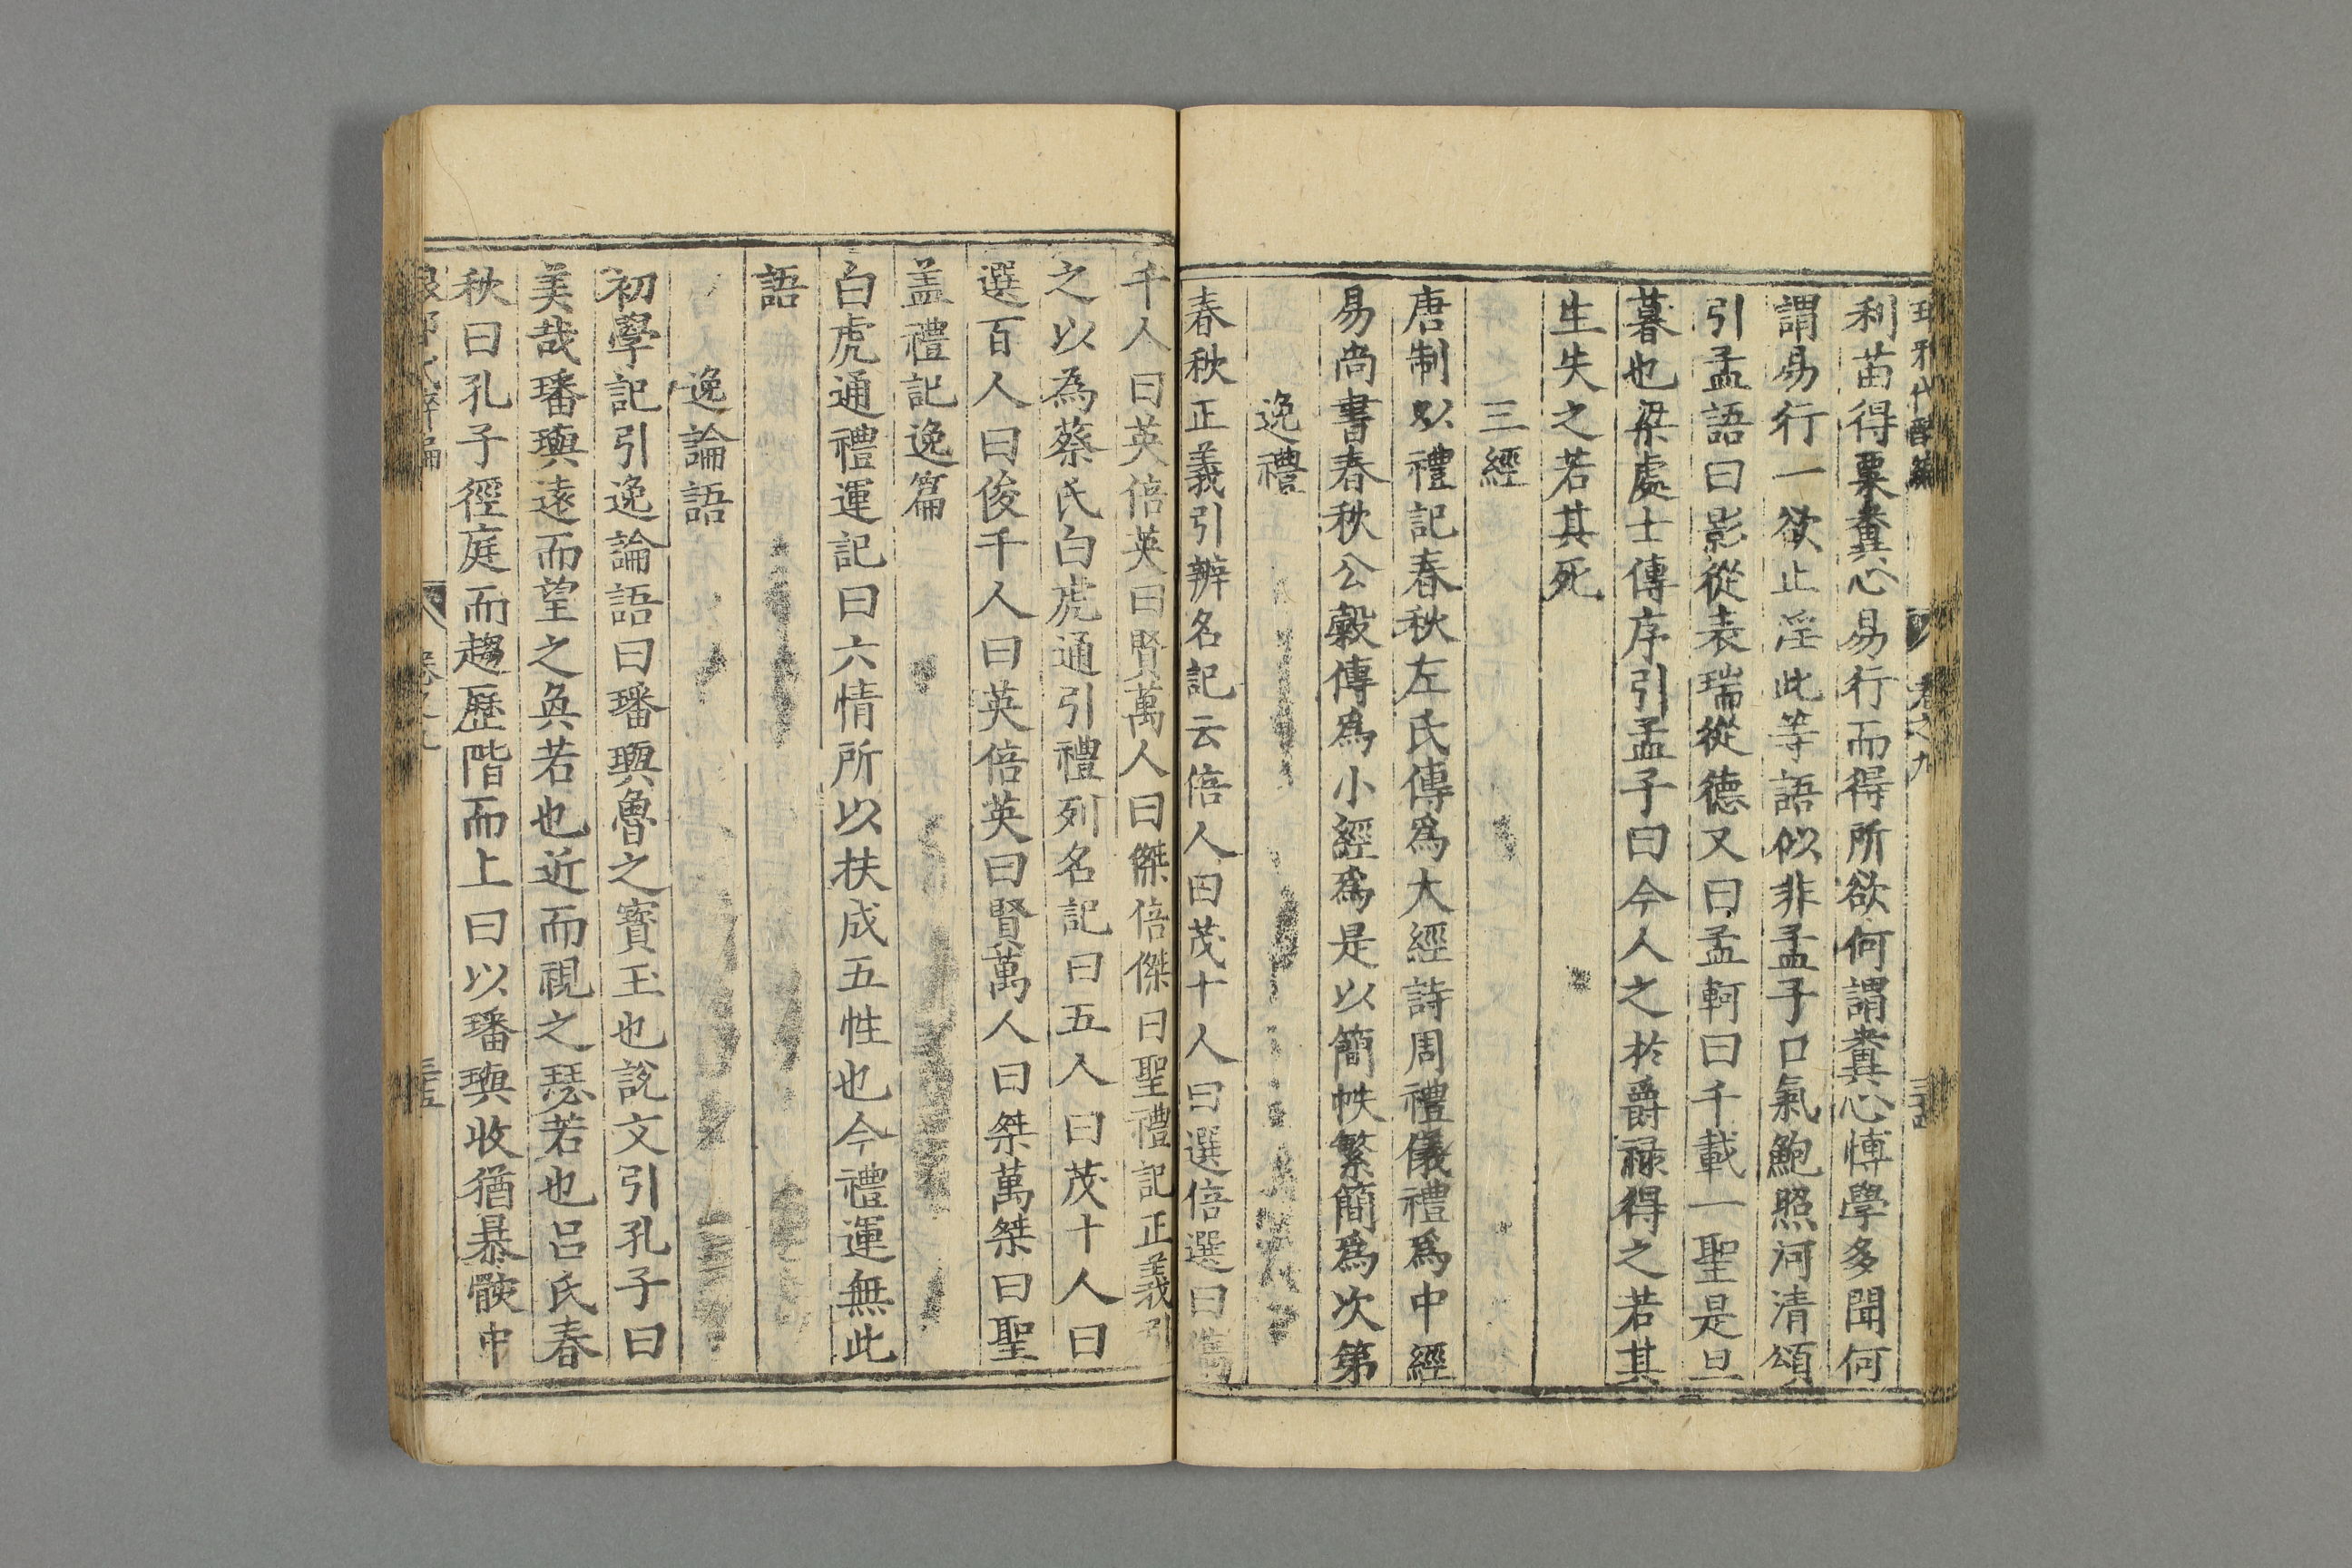 利苗得粟糞心易行而得所欲何謂糞心博學多聞何
謂易行一欲止淫此等語似非孟子口氣鮑照河清頌
引孟語曰影從表瑞從德又曰孟軻曰千載一聖是旦
暮也梁處士傳序引孟子曰今人之於爵祿得之若其
生失之若其死
三經
唐制以禮記春秋左氏傳爲大經詩周禮儀禮爲中經
易尚書春秋公糓傳爲小經爲是以簡帙繁簡爲次第
逸禮
春秋正義引辨名記云倍人曰茂十人曰選倍選曰雋
千人曰英倍英曰賢萬人曰傑倍傑曰聖禮記正義引
之以為蔡氏白虎通引禮列名記曰五人曰茂十人曰
選百人曰俊千人曰英倍英曰賢萬人曰桀萬桀曰聖
盖禮記逸篇
白虎通禮運記曰六情所以扶成五性也今禮運無此
語
逸論語
初學記引逸論語曰璠璵魯之寳玉也說文引孔子曰
美哉璠璵逺而望之奐若也近而視之瑟若也呂氏春
秋曰孔子徑庭而趨歷階而上曰以璠璵收猶暴骸中
卷之九